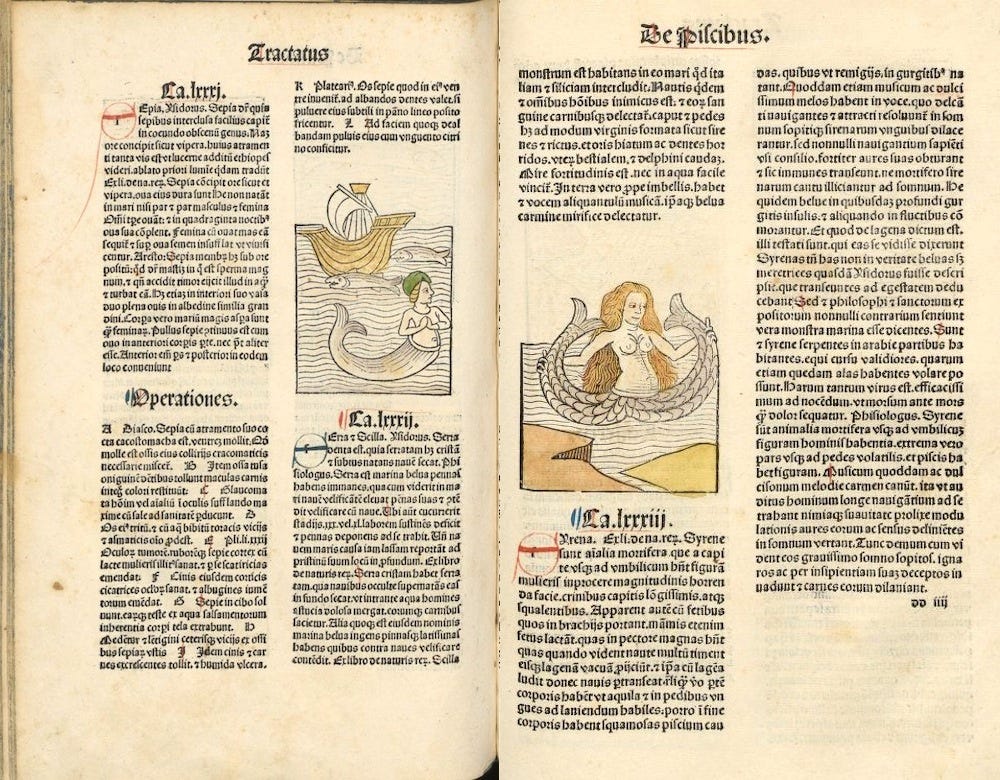 Tractatus
Ca.lxxxj.
Epia. Isidorus. Sepia dr̄ quia
sepibus interclusa facilius capit̄
in coeundo obscenū genus. Nā
ore concipit sicut vipera. huius atramen
ti tanta vis est vt lucerne additū ethiopes
videri. ablato priori lumīe qdam tradūt
Ex li. de na. reȝ. Sepia cōcipit ore sicut et
vipera. oua eius dura sunt
in mari nisi par ⁊ par masculus ⁊ femina
⁊ in quadraginta noctibꝰ
oua sua cōplent. Femina cū ouat mas eā
sequit̄ ⁊ sup oua semen insufflat vt viuifi
centur. Sepia membȝ hȝ sub ore
positū: in q̄ est sperma mag
num. ⁊ qn̄ accidit timor eijcit illud in aq̄
⁊ turbat eā. Hȝ etiā in interiori suo vasa
duo plena ouis in albedine similia gran
dini. Corpa vero mariū magis aspa sunt
q̄ feminaȝ. Pullus sepie ꝯtinuus est cum
ouo in anteriori corꝑis ꝑte. nec pōt aliter
esse. Anterior em̄ ps ⁊ posterior in eodem
loco conueniunt
Operationes.
A Diasco. Sepia cū atramento suo co
cta cacostomacha est. ventreȝ mollit.
molle est ossis eius collirijs
necessarie miscet̄. B Item ossa usta
maculas carnis
inteq̄ colori restituūt. C Glaucoma
ta hoīm vel aīaliū ī oculis sufflando ma
xime cū sale ad sanitatē pducunt. D
Os ei tritū. ⁊ cū aq̄ bibitū toracis vicijs
⁊ asmaticis pdest. E Pli. li. xxxij
Oculoȝ tumorē. ruboreqȝ sepie cortex cū
lacte mulieris illitꝰ sanat. ⁊ ꝑ se
emendat. F Cinis eiusdem corticis
cicatrices oculoȝ sanat. ⁊ albugines iumē
torum emēdat. G Sepie in cibo sol
uunt. earqȝ teste ex aqua salsamentorum
inherentia corpi tela extrahunt. H
Medetur ⁊ lentigini ceterisqȝ vicijs ex ossi
bus sepiaȝ vstis I Idem cinis ⁊ car
nes excrescentes tollit. ⁊ humida vlcera.
K Platearꝰ. Os sepie quod in eiꝰ ven
tre inuenit̄. ad albandos dentes valet. si
puluere eius subtili in pāno lineo posito
fricentur. L Ad faciem quoqȝ deal
bandam puluis eius cum vnguento citri
no conficitur.
Ca.lxxxij.
Erra ⁊ Scilla. Isidorus. Serra
denta est. quia serratam hȝ cristā
⁊ subtus natans nauē secat. Phi
siologus. Serra est marina belua pennas
habens immanes. qua cum viderit in ma
ri nauē velificātē eleuat pēnas suas ⁊ ꝯtē
dit velificare cū naue. Ubi aūt cucurrerit
stadijs. xxx. vel. xl. laborem sustinēs deficit
⁊ pennas deponens ad se trahit. Un̄ na
uem maris causa iam lassam reportāt ad
pristinū suum locū in ꝓfundum. Ex libro
de naturis reȝ. Serra cristam habet serra
tam. qua nauibus occulte supernatās eas
in fundo secat. vt intrante aqua homines
astucia dolosa mergat. eorumqȝ carnibus
sacietur. Alia quoqȝ est eiusdem nominis
marina belua ingens pinnasqȝ latissimas
habens quibus contra naues velificare
contēdit. Ex libro de naturis reȝ. Scilla
De Piscibus.
monstrum est habitans in eo mari qd ita
liam ⁊ siciliam intercludit. Nautis qdem
⁊ om̄ibus hoībus inimicus est. ⁊ eoȝ san
guine carnibusqȝ delectat̄. caput ⁊ pedes
hȝ ad modum virginis formata sicut sire
nes ⁊ rictus. et oris hiatum ac dentes hor
ridos. vteȝ bestialem. ⁊ delphini caudaȝ.
Mire fortitudinis est. nec in aqua facile
vincit̄. In terra vero ꝓpe imbellis. habet
⁊ vocem aliquantulū musicā. ipaqȝ belua
carmine mirifice delectatur.
Ca.lxxxiij.
Yrena. Ex li. de na. reȝ. Syrene
sunt aīalia mortifera. que a capi
te vsqȝ ad vmbilicum hn̄t figurā
mulieris in procere magnitudinis horren
da facie. crinibus capitis lōgissimis. atqȝ
squalentibus. Apparent autē cū fetibus
quos in brachijs portant. māmis etenim
fetus lactāt. quas in pectore magnas hn̄t
quas quando vident naute multū timent
eisqȝ lagenā vacuā ꝓijciūt. ⁊ ipā cū lagēa
ludit donec nauis ptranseat. rliq̄ vo ꝑtē
corporis habēt vt aquila ⁊ in pedibus vn
gues ad laniendum habiles: porro ī fine
corporis habent squamosas piscium cau
das. quibus vt remigijs. in gurgitibꝰ na
tant. Quoddam etiam musicum ac dulci
ssimum melos habent in voce. quo delecta
ti nauigantes ⁊ attracti resoluunt̄ in som
num sopitiqȝ sirenarum vnguibus dilace
rantur. sed nonnulli nauigantium sapiēti
vsi consilio. fortiter aures suas obturant
⁊ sic immunes transeunt. ne mortifero sire
narum cantu illiciantur ad somnum. He
quidem belue in quibusdaȝ profundi gur
gitis insulis. ⁊ aliquando in fluctibus cō
morantur. Et quod de lagena dictum est.
illi testati sunt. qui eas se vidisse dixerunt
Syrenas tn̄ has non in veritate beluas sȝ
meretrices quasdā Isidorus fuisse descri
psit. que transeuntes ad egestatem dedu
cebant. Sed ⁊ philosophi ⁊ sanctorum ex
positorum nonnulli contrarium sentiunt
vera monstra marina esse dicentes. Sunt
⁊ syrene serpentes in arabie partibus ha
bitantes. equi cursu validiores. quarum
etiam quedam alas habentes volare po
ssunt. Harum tantum virus est. efficacissi
mum ad nocendum. vt morsum ante mors
q̄ dolor sequatur. Phisiologus. Syrene
sūt animalia mortifera vsqȝ ad vmbilicuȝ
figuram hominis habentia. extrema vero
pars vsqȝ ad pedes volatilis. et piscis ha
bet figuram. Musicum quoddam ac dul
cisonum melodie carmen canūt. ita vt au
ditus hominum longe nauigātium ad se
trahant nimiaqȝ suauitate prolixe modu
lationis aures eorum ac sensus deliniētes
in somnum vertant. Tunc demum cum vi
dent eos grauissimo somno sopitos. igna
ros ac per insipientiam suaȝ deceptos in
uadunt ⁊ carnes eorum dilaniant.
dd iiij